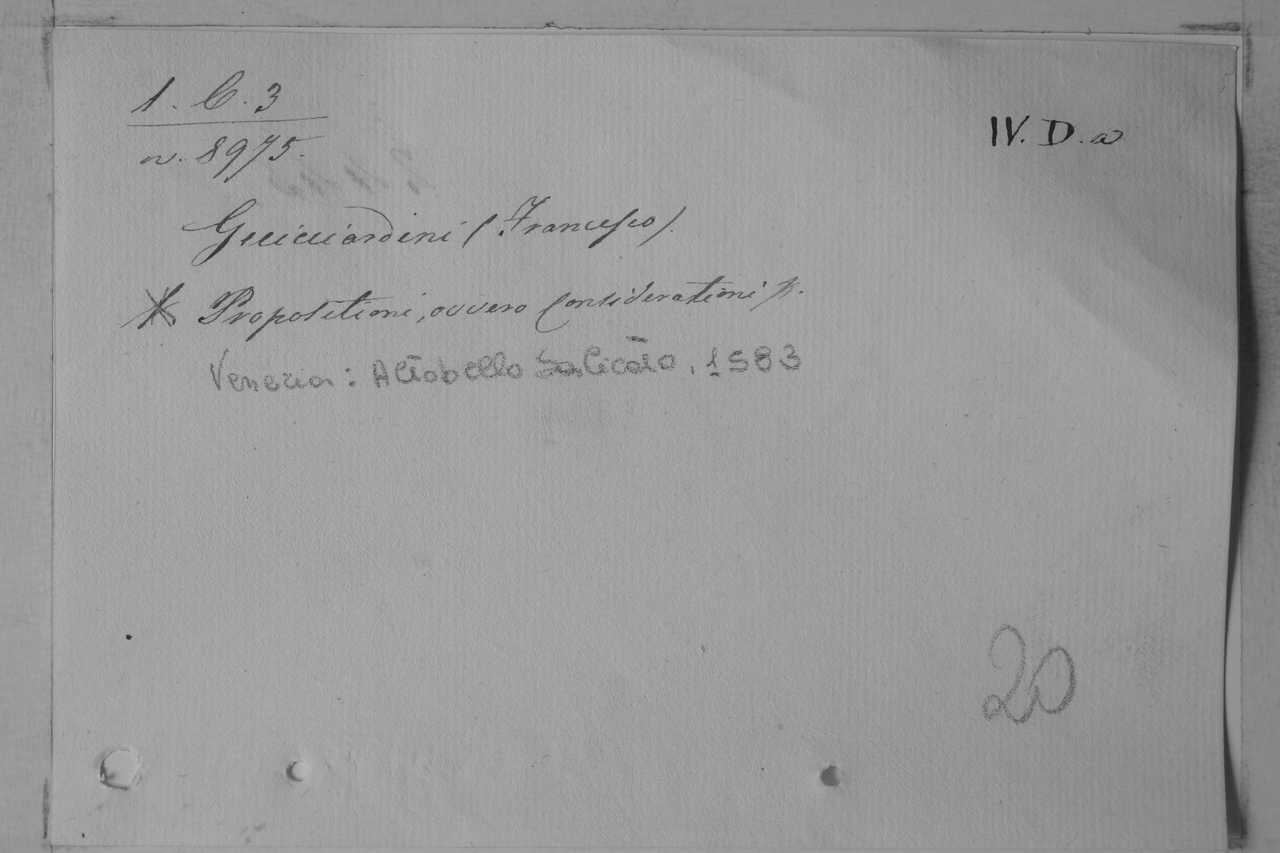 1. C. 3
n. 8975.
IV. D. a
Guicciardini (Francesco).
* Propositioni, ovvero Considerationi
Venezia: Altobello Salicato, 1583
20